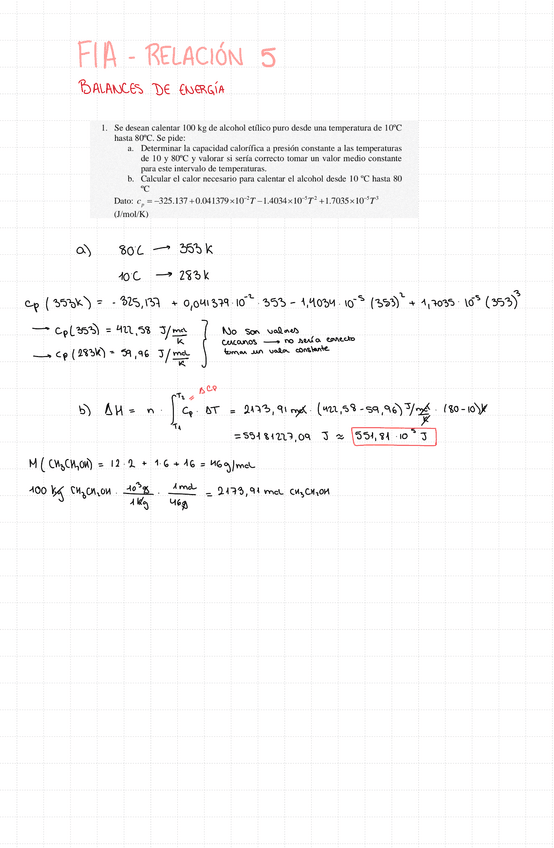 FIA - RELACIÓN 5
BALANCES DE ENERGÍA
1. Se desean calentar 100 kg de alcohol etílico puro desde una temperatura de 10ºC
hasta 80ºC. Se pide:
a. Determinar la capacidad calorífica a presión constante a las temperaturas
de 10 y 80ºC y valorar si sería correcto tomar un valor medio constante
para este intervalo de temperaturas.
b. Calcular el calor necesario para calentar el alcohol desde 10 ºC hasta 80
ºC
Dato: cₚ = −325.137 + 0.041379×10⁻²T − 1.4034×10⁻⁵T² + 1.7035×10⁻⁵T³
(J/mol/K)
a) 80°C → 353 K
10°C → 283 K
Cp (353K) = - 325,137 + 0,041379·10⁻² · 353 - 1,4034·10⁻⁵ (353)² + 1,7035·10⁻⁵ (353)³
→ Cp(353) = 422,58 J/mol/K
→ Cp(283K) = 59,96 J/mol/K
No son valores
cercanos → no sería correcto
tomar un valor constante
b) ΔH = n · ∫_{T1}^{T2} Cp · ΔT = 2173,91 mol · (422,58 - 59,96) J/mol/K · (80-10) K
= ΔCp
= 55181227,09 J ≈ 551,81·10⁵ J
M(CH₃CH₂OH) = 12·2 + 1·6 + 16 = 46 g/mol
100 kg CH₃CH₂OH · 10³ g / 1 kg · 1 mol / 46 g = 2173,91 mol CH₃CH₂OH